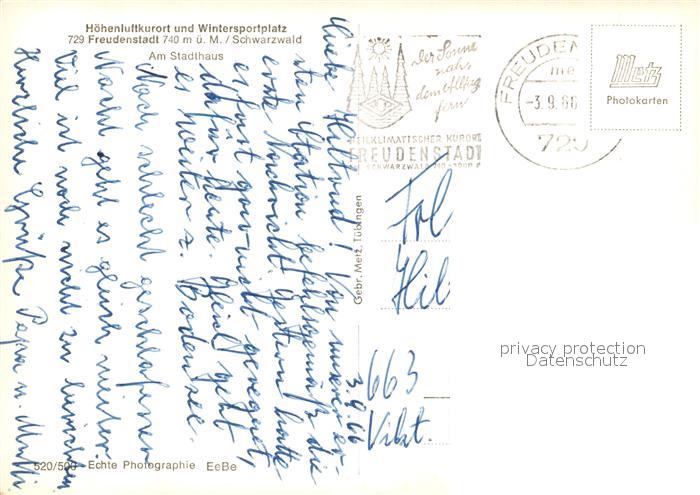 Höhenluftkurort und Wintersportplatz
729 Freudenstadt 740 m ü. M. / Schwarzwald
Am Stadthaus
3.9.66
Liebe Hiltrud! Von unserer er-
sten Station befehlsgemäß die
erste Nachricht. Gestern hatte
es fast gar nicht geregnet,
dafür heute. Gleich geht
es weiter z. Bodensee.
Nach schlecht geschlafener
Nacht geht es gleich weiter.
Viel ist noch nicht zu berichten
Herzliche Grüße Papa u. Mutti
Der Sonne
nah,
dem Alltag
fern
HEILKLIMATISCHER KURORT
FREUDENSTADT
SCHWARZWALD
FREUDEN
-3.9.66
729
Metz
Photokarten
Gebr. Metz, Tübingen
Frl
Hil
663
Völkl.
privacy protection
Datenschutz
520/500 Echte Photographie EeBe